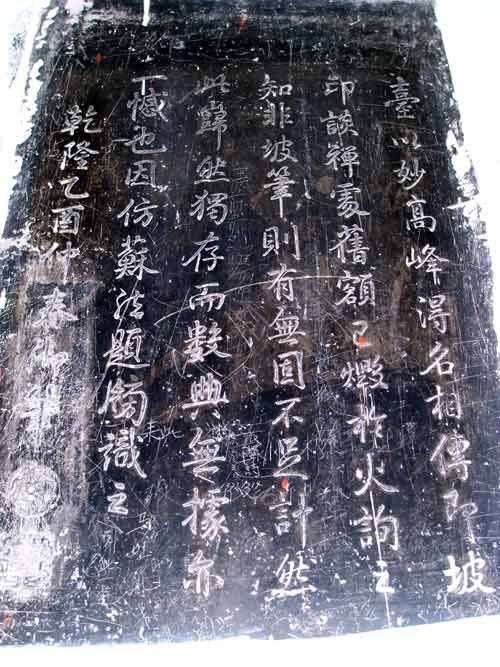 臺以妙高峰得名相傳即坡
印談禪處舊額已燬於火詢之
知非坡筆則有無固不足計然
此巋然獨存而數典無據亦
一憾也因仿蘇法題扁識之
乾隆乙酉仲春御筆